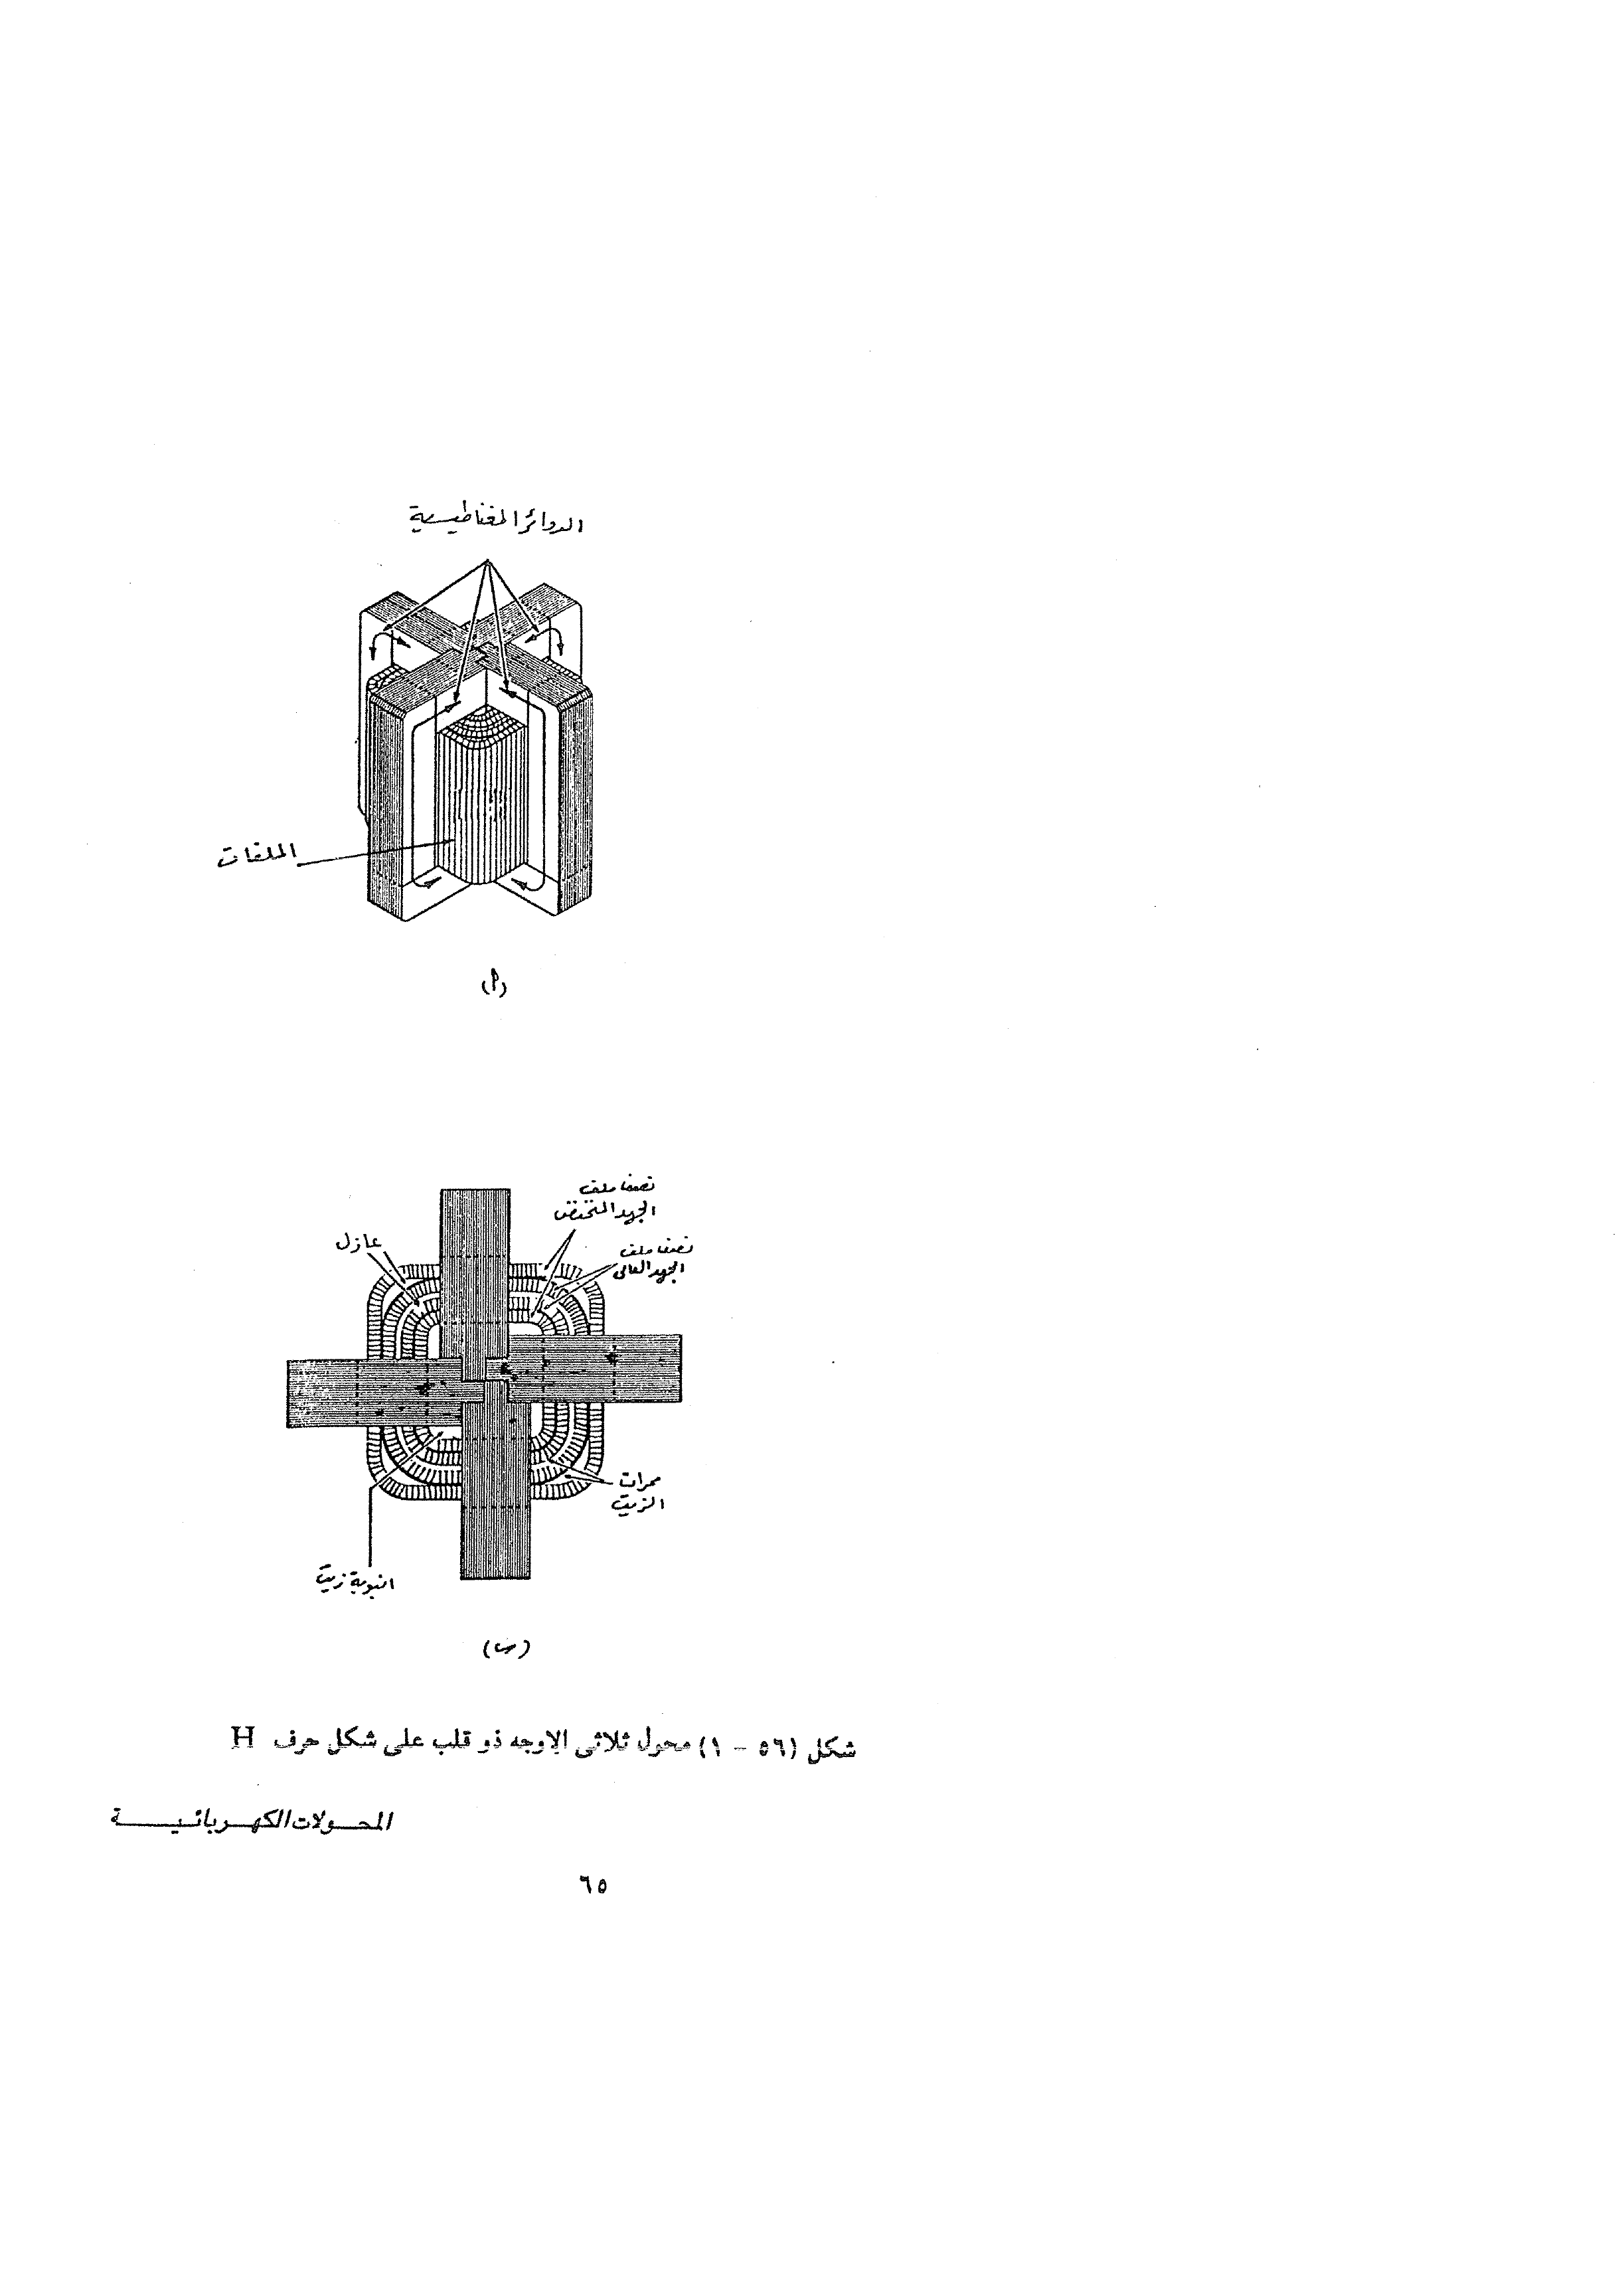 الدوائر المغناطيسية
الملفات
(أ)
نصفا ملف
الجهد المنخفض
عازل
نصفا ملف
الجهد العالى
ممرات
الزيت
انبوبة زيت
(ب)
شكل (٥٦ - ١) محول ثلاثى الاوجه ذو قلب على شكل حرف H
المحولات الكهربائية
٦٥